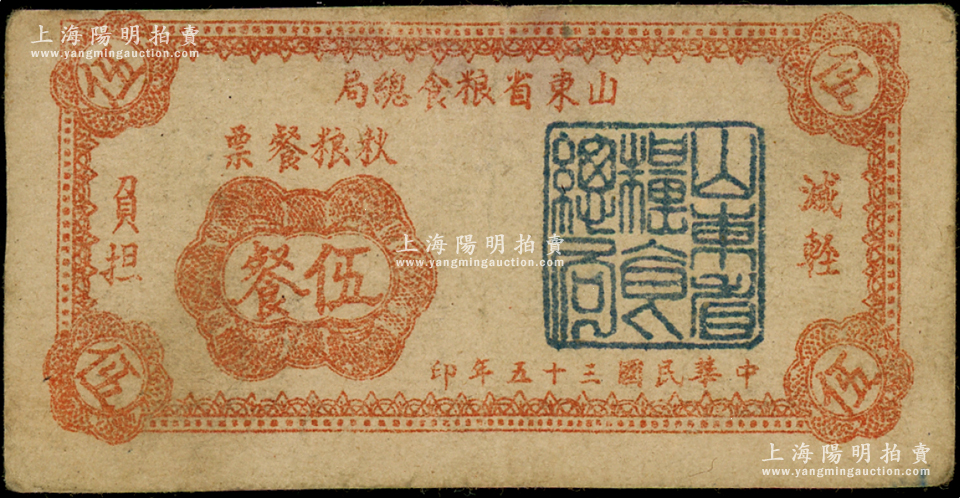 上海陽明拍賣
www.yangmingauction.com
伍
伍
山東省粮食總局
秋粮餐票
減輕
負担
伍餐
山東省
糧食
總局
上海陽明拍賣
www.yangmingauction.com
中華民國三十五年印
伍
伍
上海陽明拍賣
www.yangmingauction.com